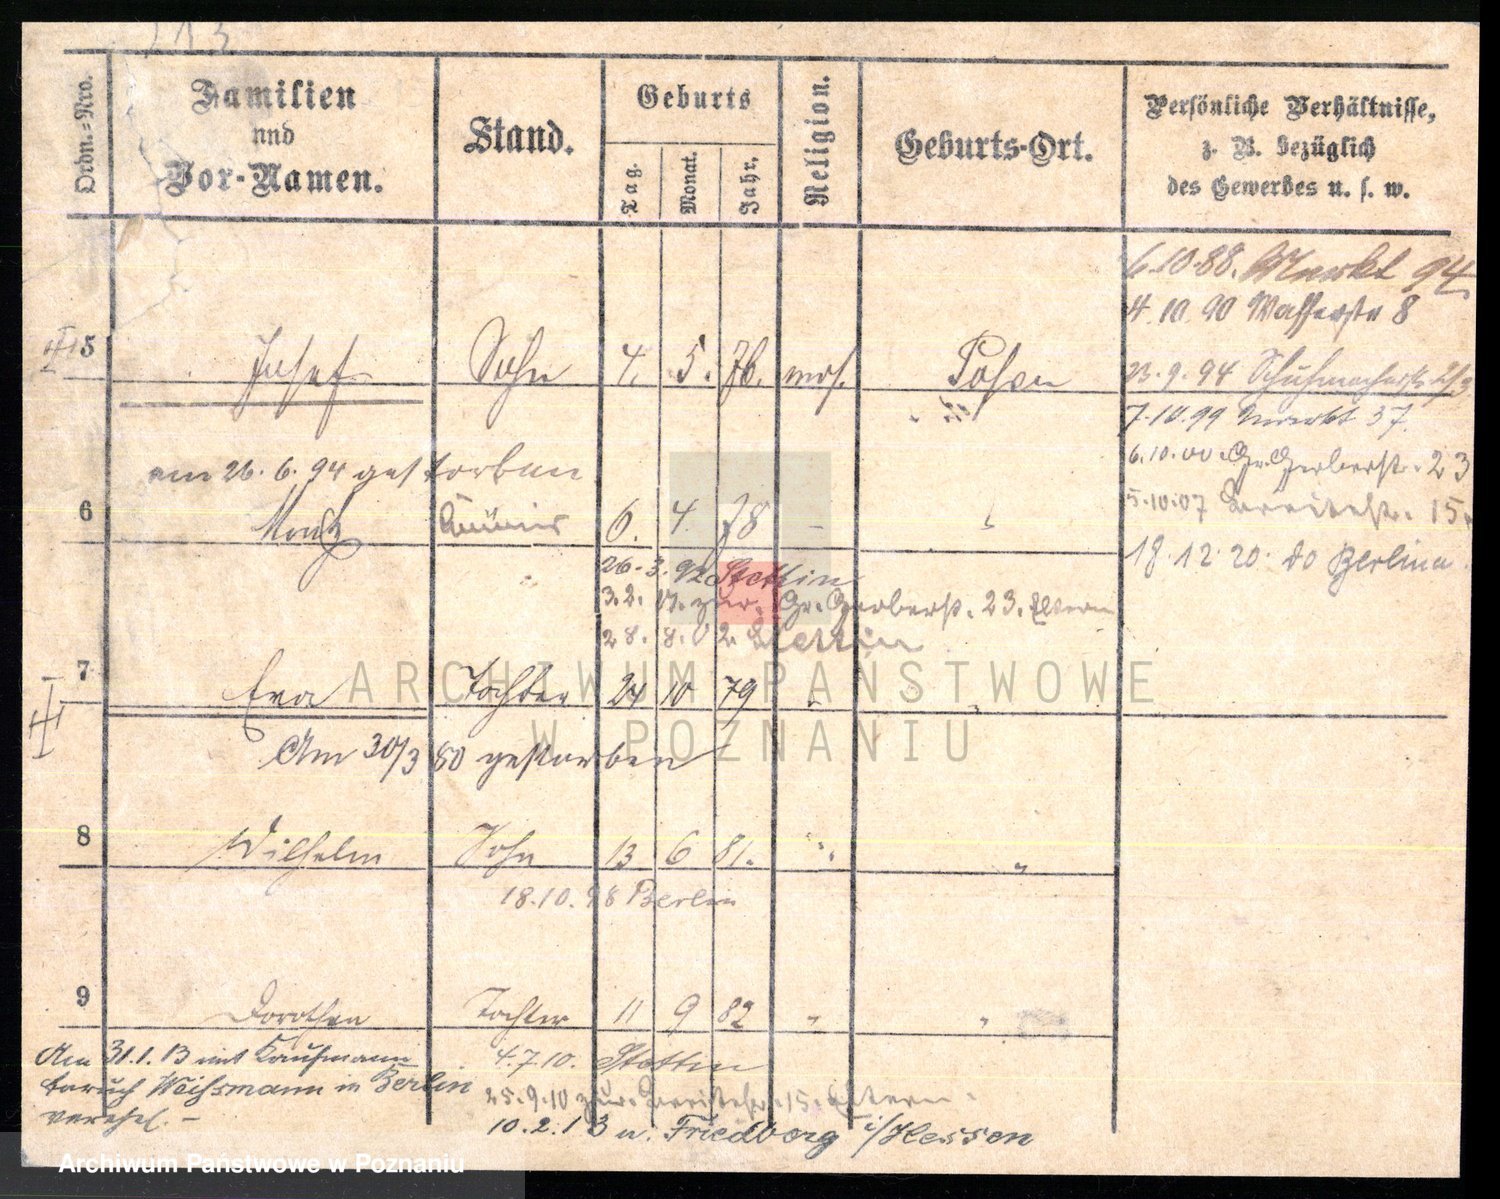 213
Ordn.=Nro.
Familien
und
Vor-Namen.
Stand.
Geburts
Tag.
Monat.
Jahr.
Religion.
Geburts-Ort.
Persönliche Verhältnisse,
z. B. bezüglich
des Gewerbes u. s. w.
6.10.88. Markt 94
4.10.90 Wasserstr 8
5 Josef Sohn 4. 5. 76. mos. Posen
23.9.94 Schuhmacherstr.
7.10.99 Markt 37.
am 26.6.94 gestorben
6.10.00 Gr. Gerberstr. 23
5.10.07 Breitestr. 15.
6 Moritz 6. 4. 78
18.12.20. do Berlina.
26.3.92 Stettin
3.2. zur. Gr. Gerberstr. 23. Eltern
28.8.02. Stettin
7 Eva Tochter 24 10 79 "
Am 30/3 80 gestorben
ARCHIWUM PAŃSTWOWE
W POZNANIU
8 Wilhelm Sohn 13 6 81. " "
18.10.98 Berlin
9 Dorothea Tochter 11 9 82 " "
Am 31.1.13 mit Kaufmann
Baruch Weihsmann in Berlin
verehel. –
4.7.10. Stettin
25.9.10 zur. Breitestr. 15. Eltern.
10.2.13 n. Friedberg i/Hessen
Archiwum Państwowe w Poznaniu